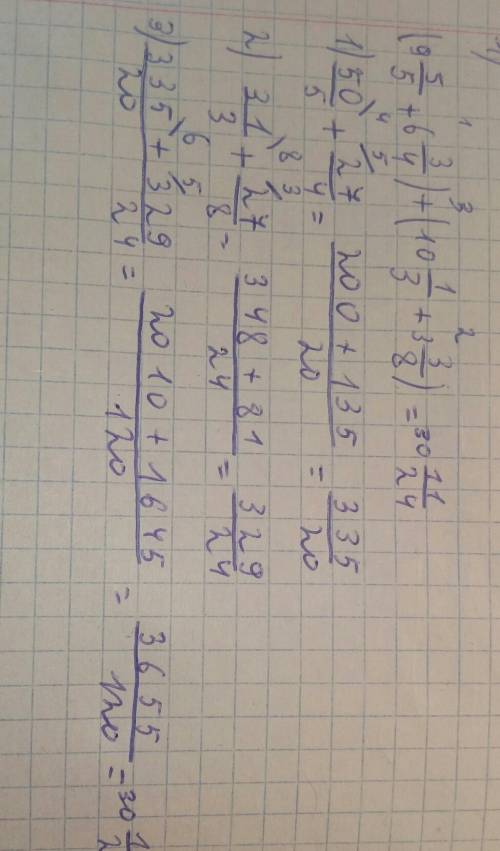 1)
(9 5/5 + 6 3/4) + (10 1/3 + 3 3/8) = 30 11/24
1) 50/5 + 27/4 = 200 + 135/20 = 335/20
2) 31/3 + 27/8 = 348 + 81/24 = 329/24
3) 335/20 + 329/24 = 2010 + 1645/120 = 3655/120 = 30 1